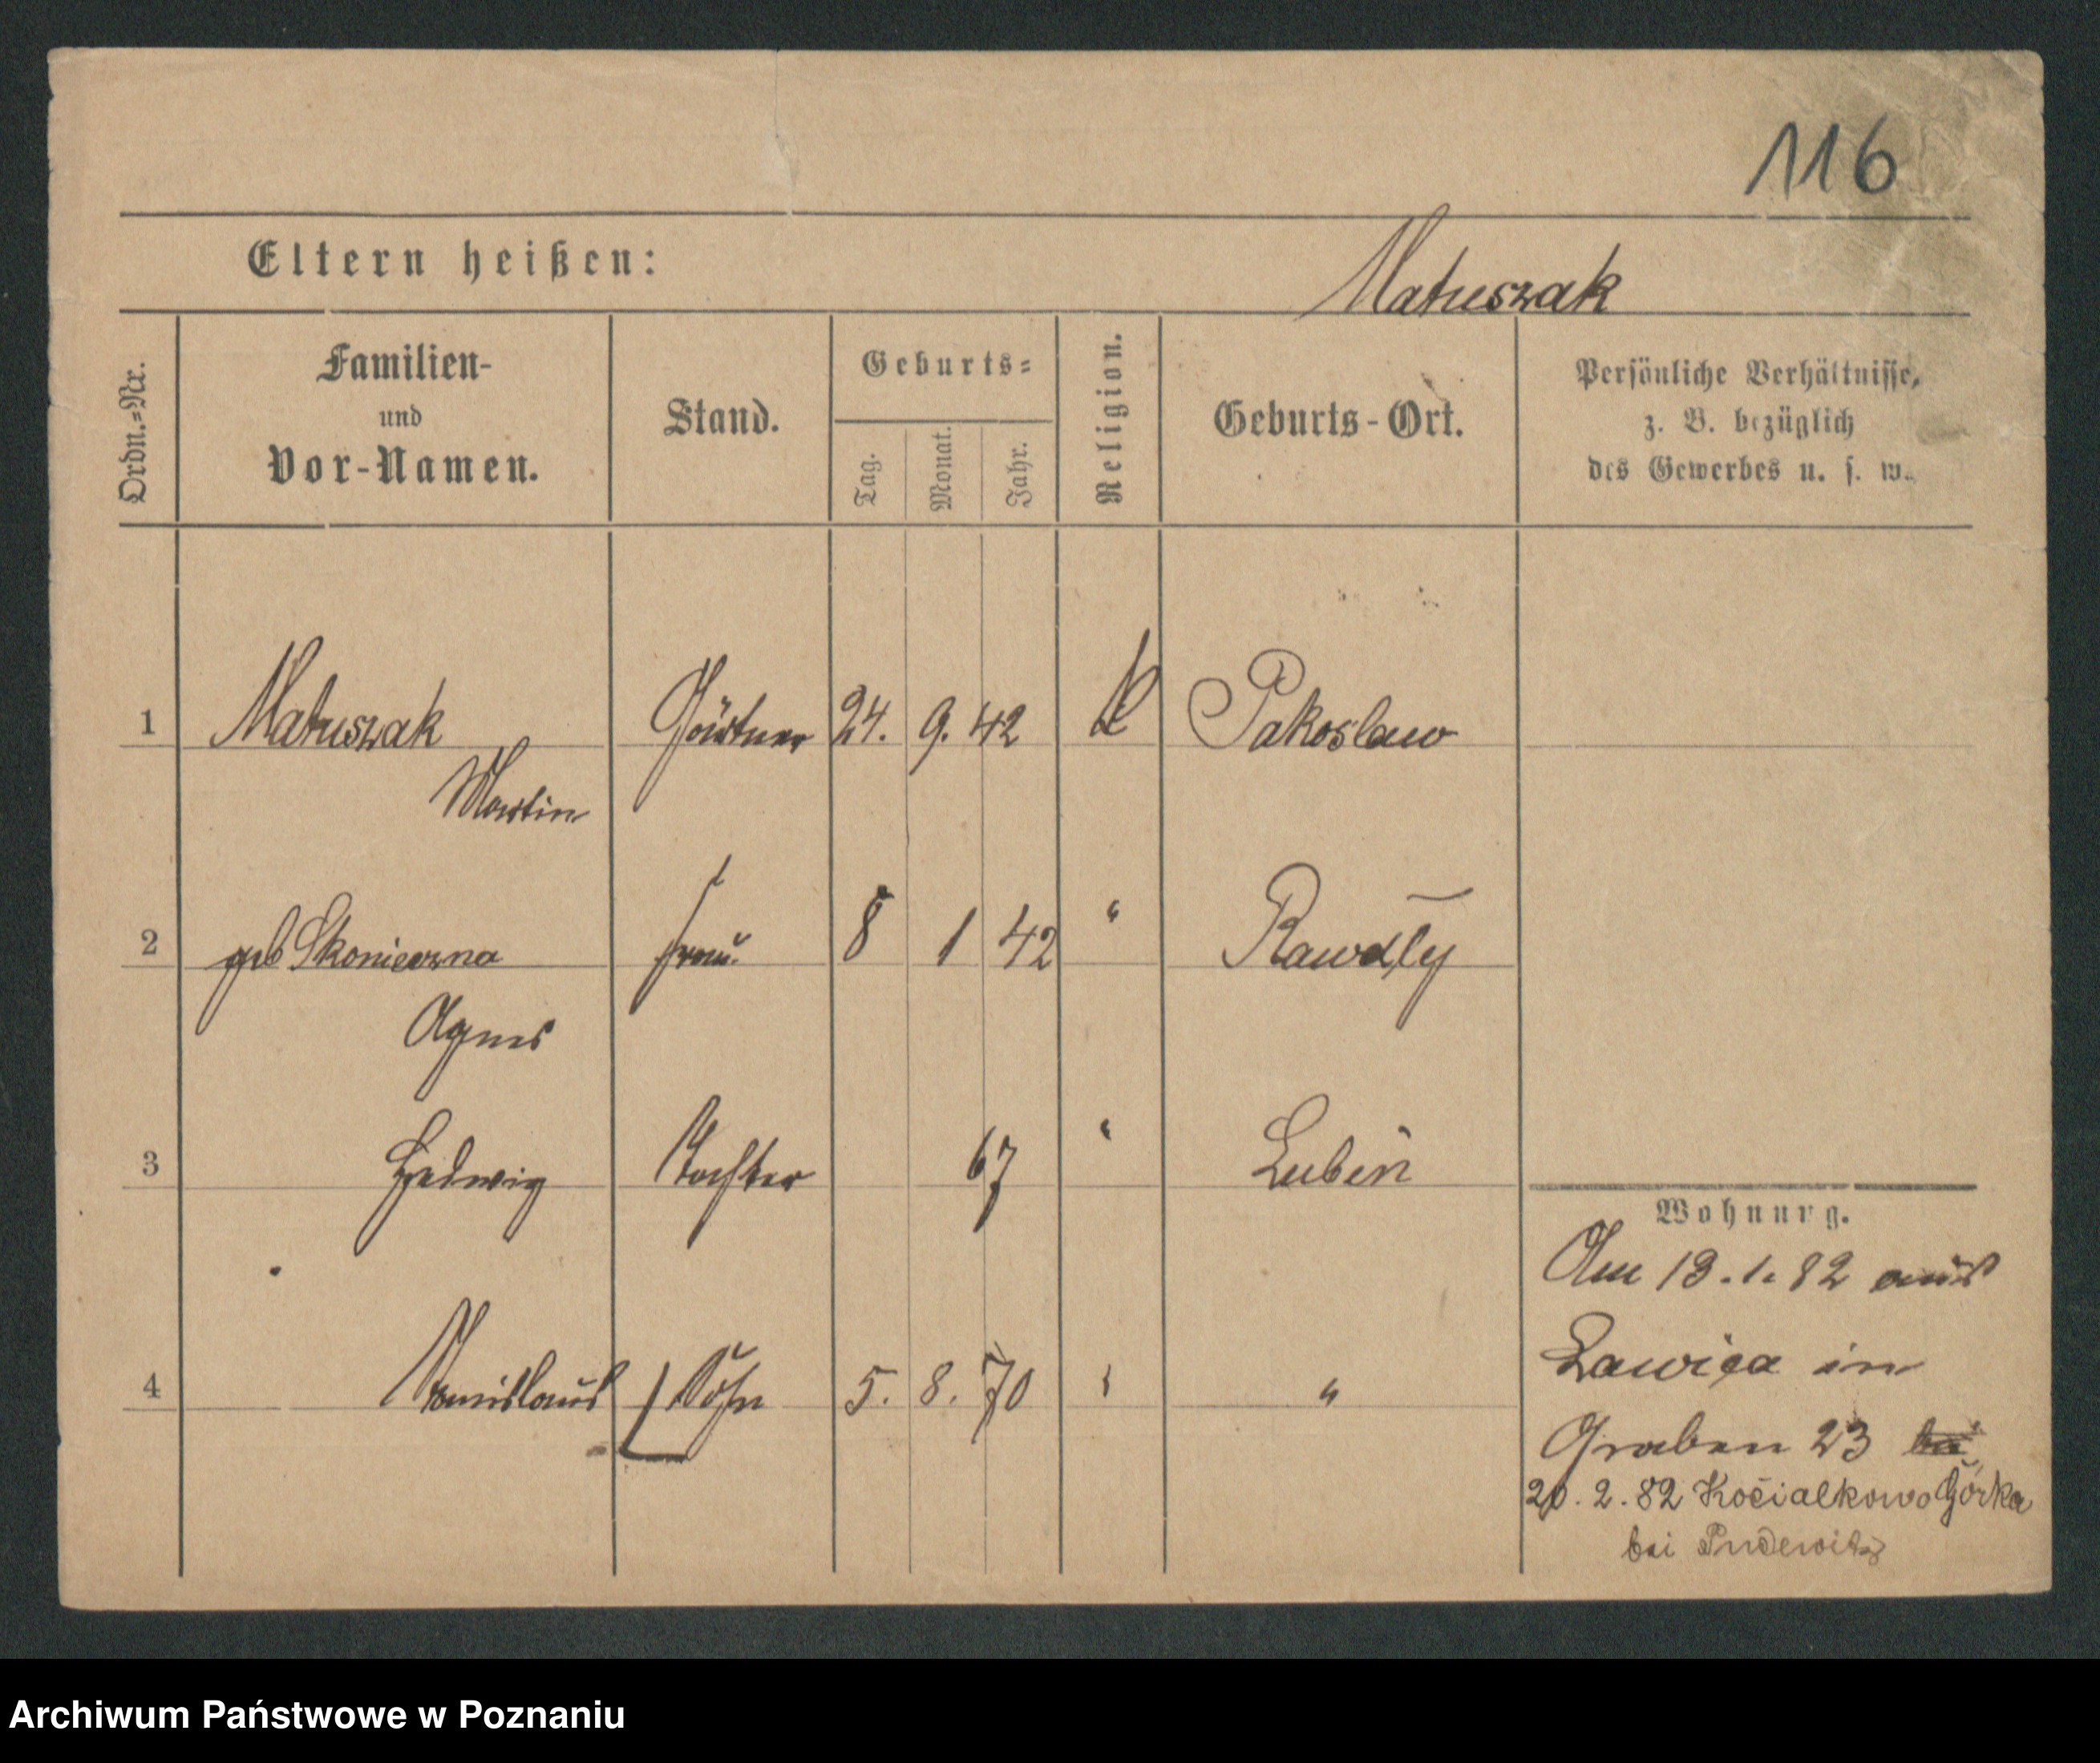 116
Eltern heißen:
Matuszak
Ordn.=Nr.
Familien-
und
Vor-Namen.
Stand.
Geburts=
Tag.
Monat.
Jahr.
Religion.
Geburts-Ort.
Persönliche Verhältnisse,
z. B. bezüglich
des Gewerbes u. s. w.
1 Matuszak Gärtner 24. 9. 42 k Pakoslaw
Martin
2 geb Skonieczna Frau 8 1 42 " 
Agnes
3 Hedwig Tochter 67 " Lubin
4 Stanislaus Sohn 5. 8. 70 " "
Wohnung.
Am 13.1.82 aus
Lawica in
Graben 23
20.2.82 Kocialkowo Górka
bei Pudewitz
Archiwum Państwowe w Poznaniu